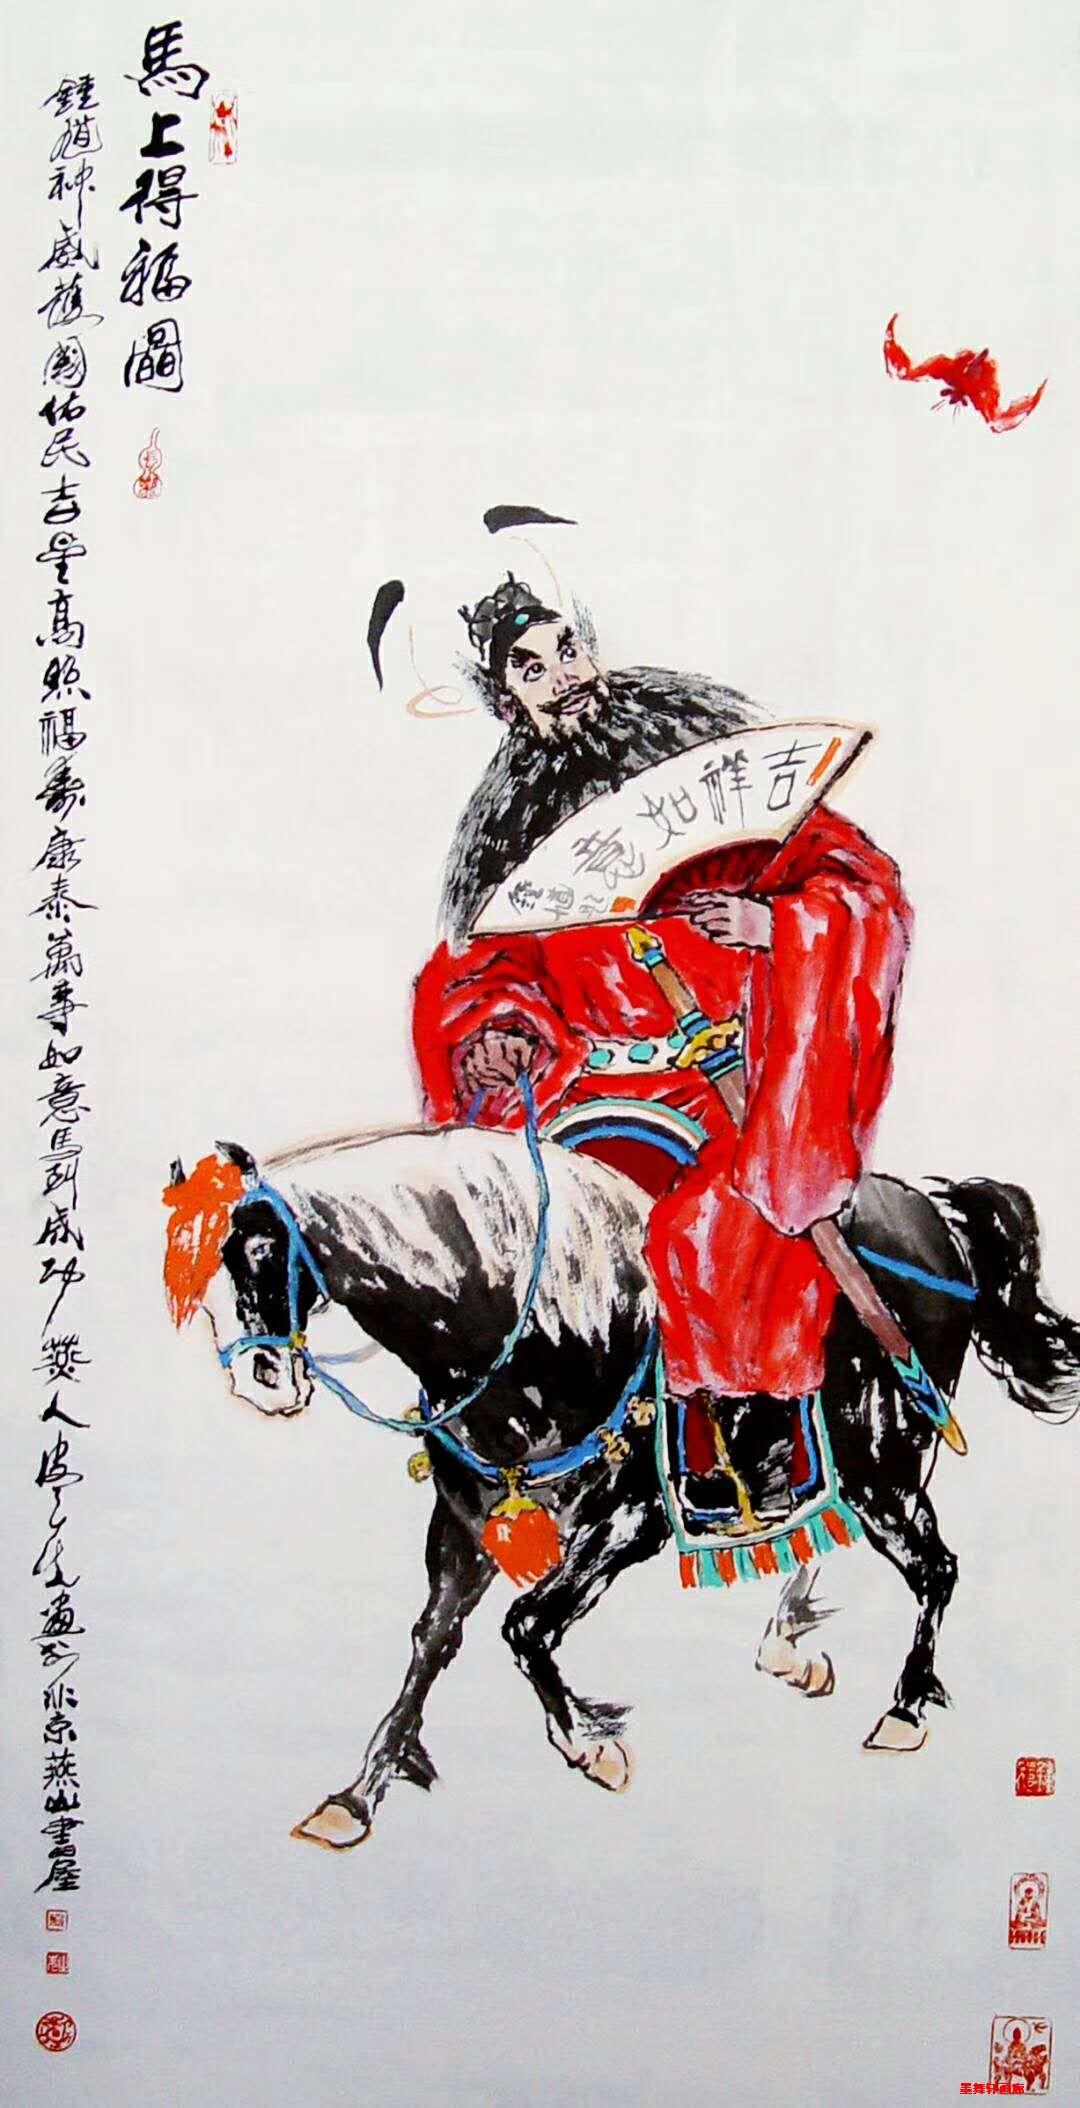 馬上得福圖
鍾馗神威護國佑民吉星高照福壽康泰萬事如意馬到成功燕人
畫於北京燕山書屋
吉祥如意
鍾馗
墨舞轩画廊